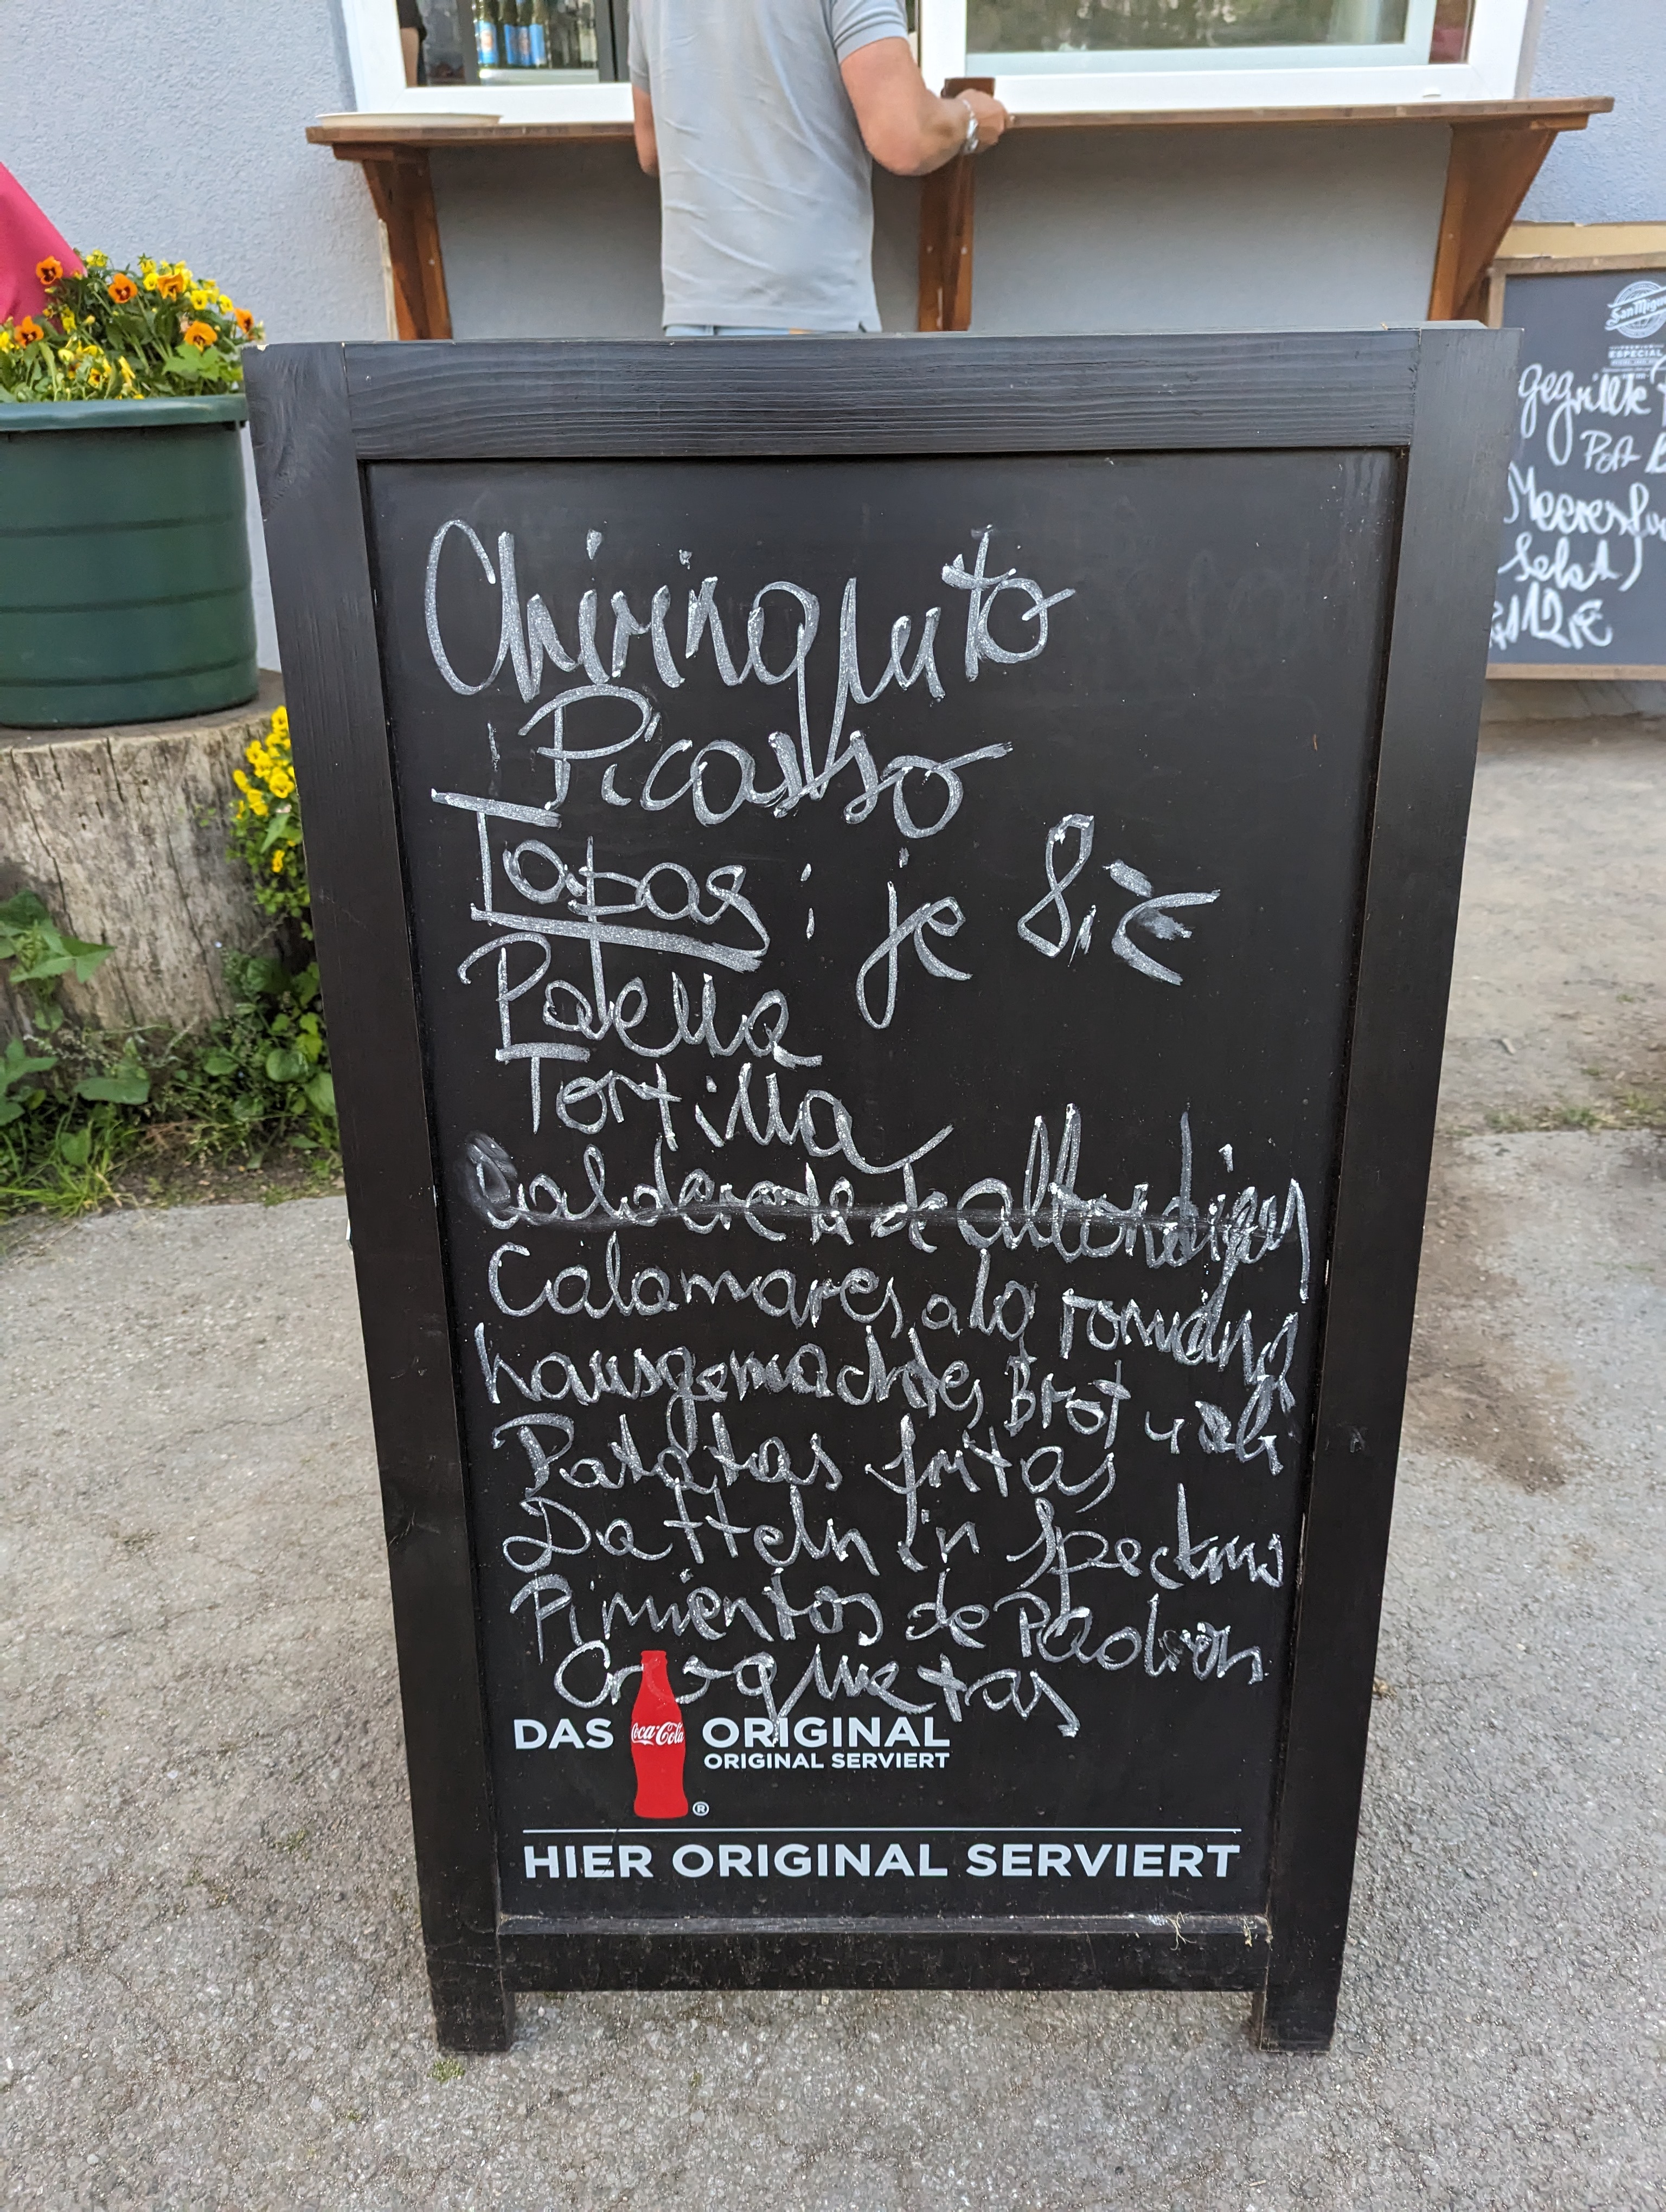 Chiringuito
Picasso
Tapas : je 8,-€
Paella
Tortilla
Caldereta de albondigas
Calamares a la romana
hausgemachtes Brot u. ali
Patatas fritas
Datteln in Speckms
Pimientos de Padron
Croquetas
DAS Coca-Cola ORIGINAL
ORIGINAL SERVIERT
®
HIER ORIGINAL SERVIERT
San Migu
ESPECIAL
gegrillte
Meeresfr
Selat)
12€